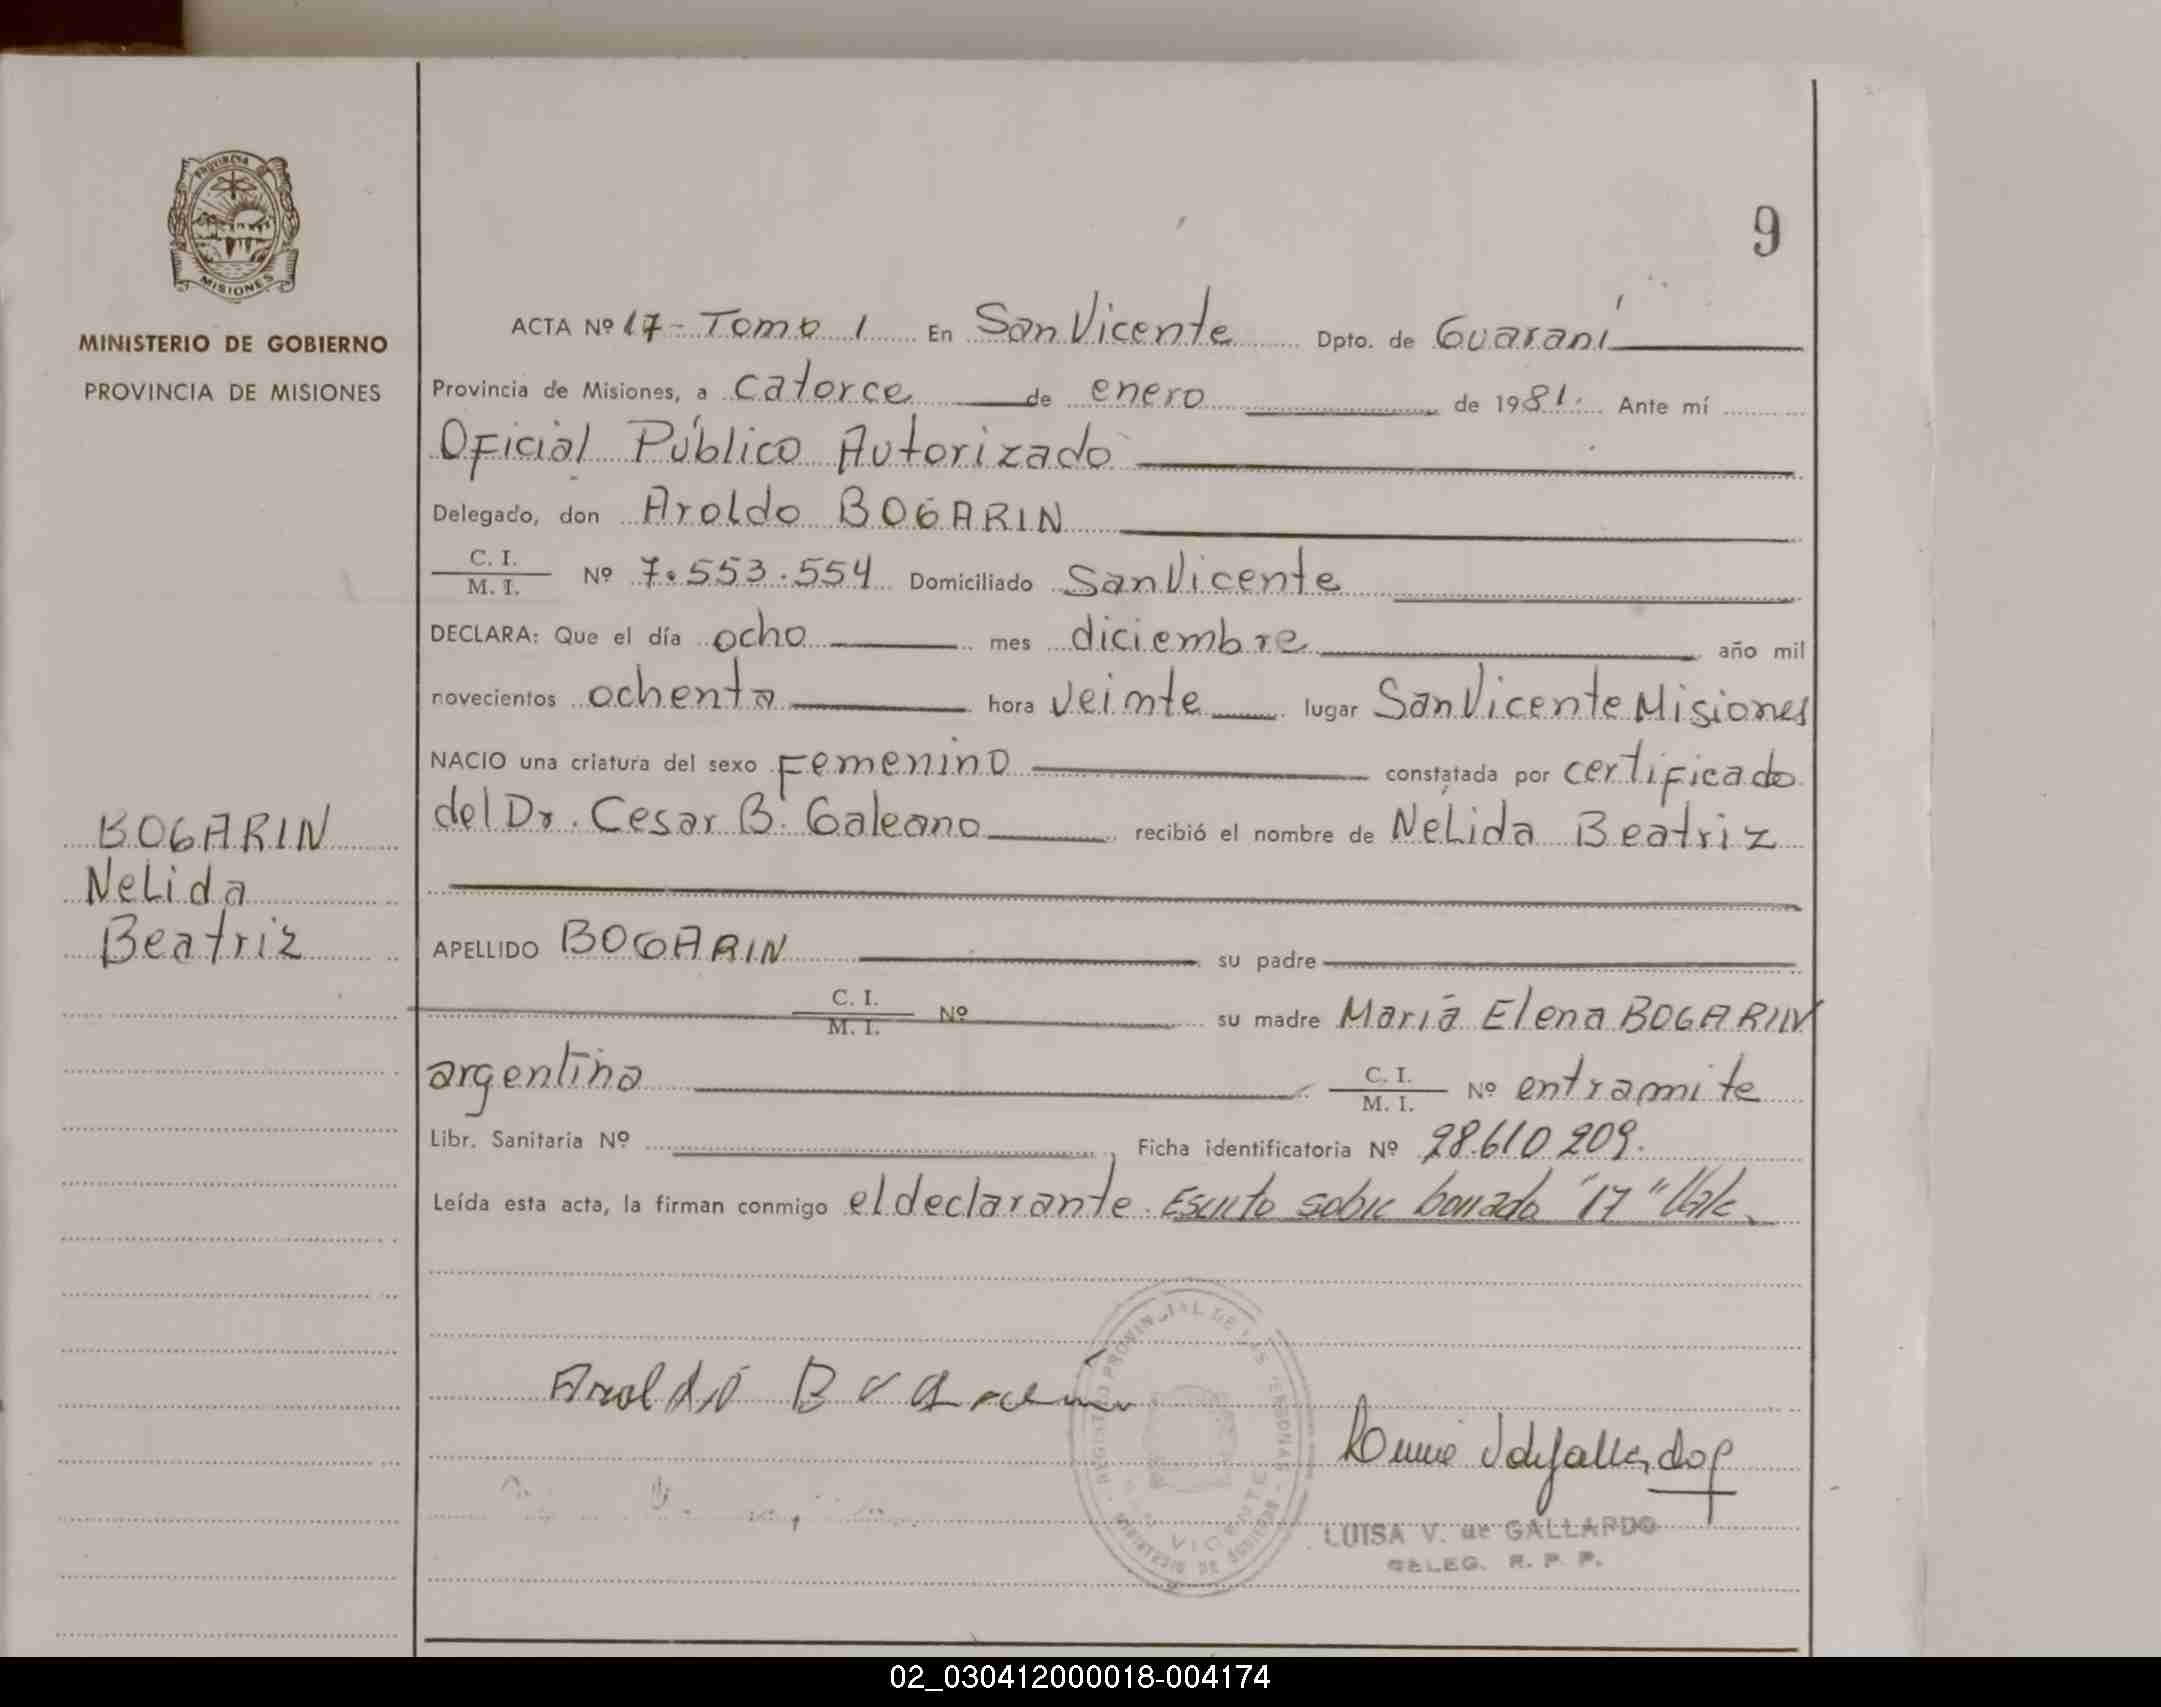 PROVINCIA
MISIONES
MINISTERIO DE GOBIERNO
PROVINCIA DE MISIONES
BOGARIN
NeLida
Beatriz
9
ACTA Nº 17 - Tomo 1 En San Vicente Dpto. de Guaraní
Provincia de Misiones, a catorce de enero de 1981. Ante mí
Oficial Público Autorizado
Delegado, don Aroldo BOGARIN
C. I.
M. I. Nº 7.553.554 Domiciliado San Vicente
DECLARA: Que el día ocho mes diciembre año mil
novecientos ochenta hora veinte lugar San Vicente Misiones
NACIO una criatura del sexo Femenino constatada por certificado
del Dr. Cesar B. Galeano recibió el nombre de NeLida Beatriz
APELLIDO BOGARIN su padre
C. I.
M. I. Nº su madre María Elena BOGARIN
argentina C. I.
M. I. Nº entramite
Libr. Sanitaria Nº Ficha identificatoria Nº 28.610.209.
Leída esta acta, la firman conmigo el declarante. Escrito sobre borrado "17" Vale.
REGISTRO PROVINCIAL DE LAS PERSONAS
VICENTE
LUISA V. de GALLARDO
DELEG. R. P. P.
02_030412000018-004174